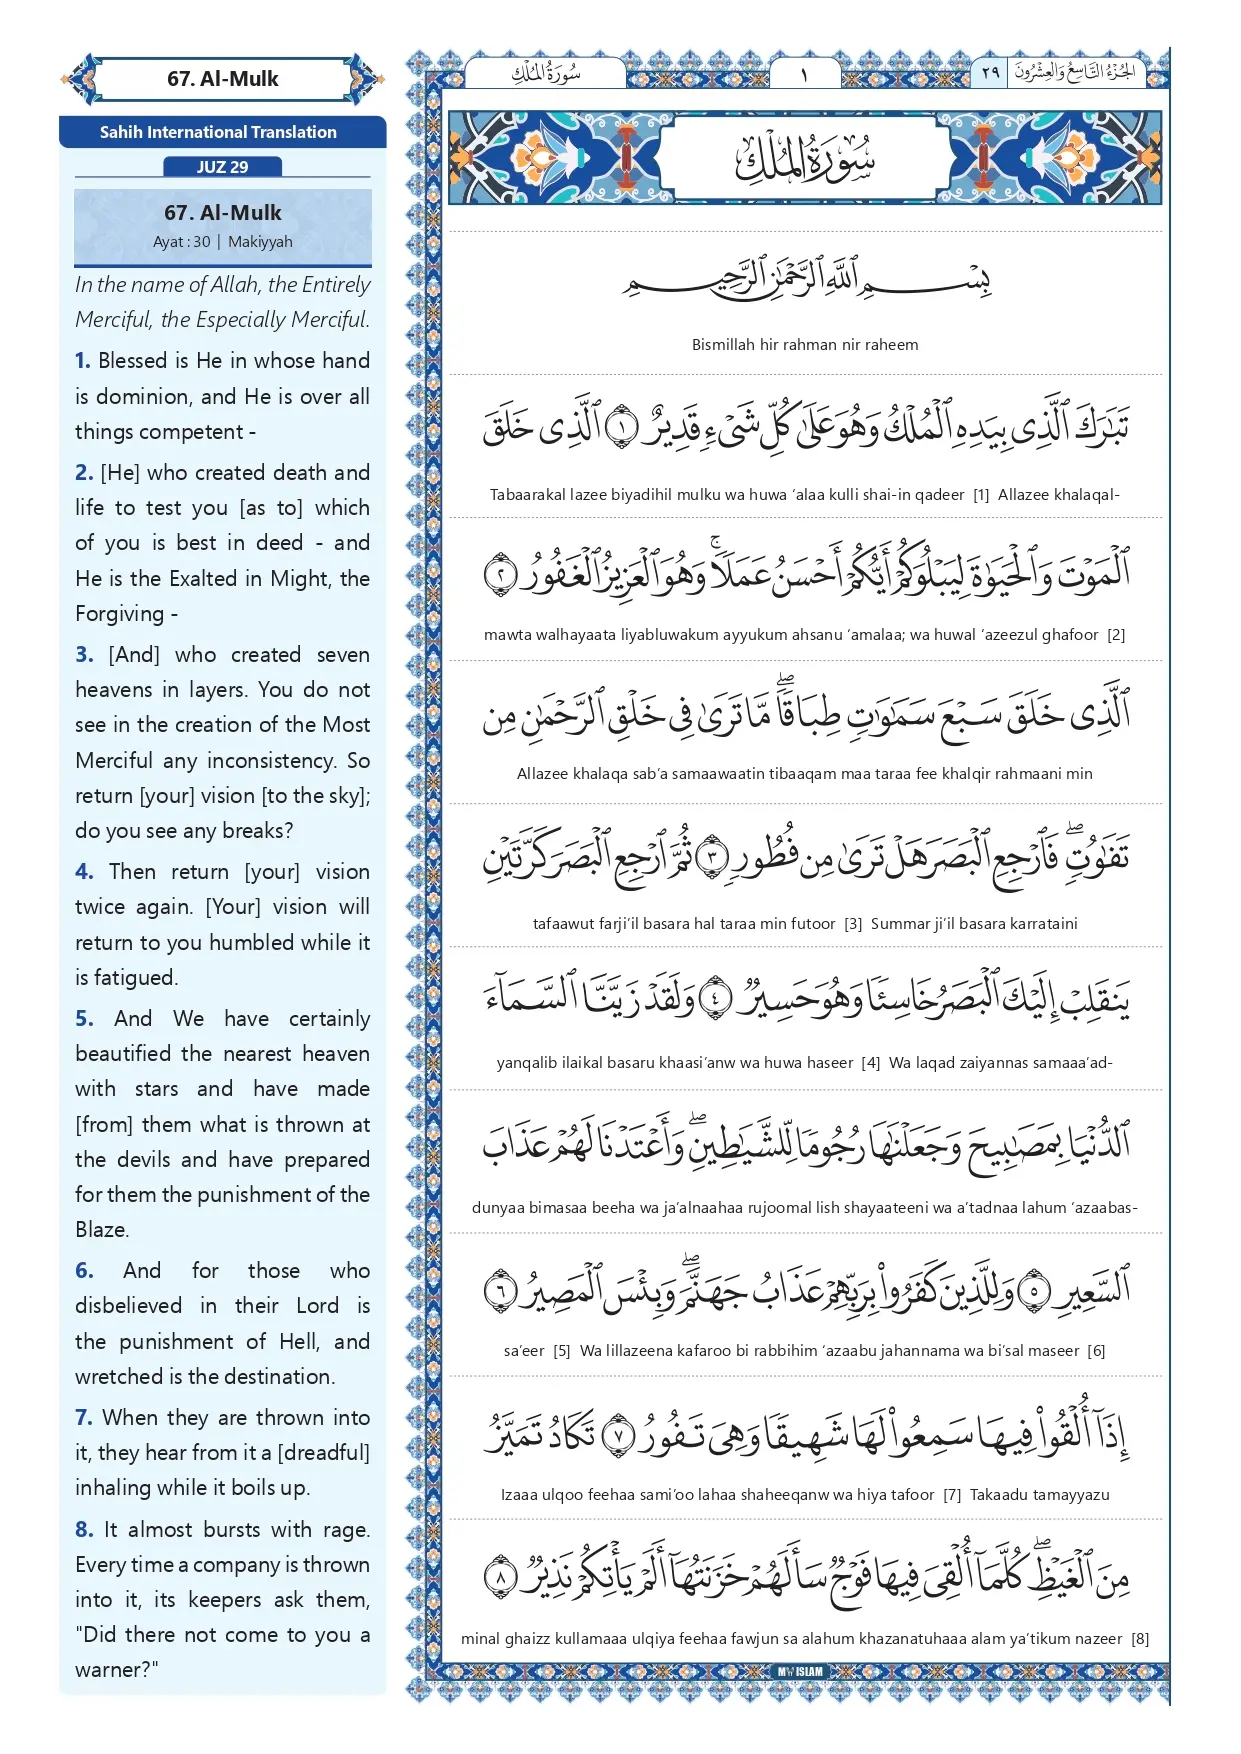 67. Al-Mulk
Sahih International Translation
JUZ 29
67. Al-Mulk
Ayat : 30 | Makiyyah
In the name of Allah, the Entirely
Merciful, the Especially Merciful.
1. Blessed is He in whose hand
is dominion, and He is over all
things competent -
2. [He] who created death and
life to test you [as to] which
of you is best in deed - and
He is the Exalted in Might, the
Forgiving -
3. [And] who created seven
heavens in layers. You do not
see in the creation of the Most
Merciful any inconsistency. So
return [your] vision [to the sky];
do you see any breaks?
4. Then return [your] vision
twice again. [Your] vision will
return to you humbled while it
is fatigued.
5. And We have certainly
beautified the nearest heaven
with stars and have made
[from] them what is thrown at
the devils and have prepared
for them the punishment of the
Blaze.
6. And for those who
disbelieved in their Lord is
the punishment of Hell, and
wretched is the destination.
7. When they are thrown into
it, they hear from it a [dreadful]
inhaling while it boils up.
8. It almost bursts with rage.
Every time a company is thrown
into it, its keepers ask them,
"Did there not come to you a
warner?"
الجُزْءُ التَّاسِعُ وَالعِشْرُونَ ٢٩
١
سُورَةُ المُلْكِ
سُورَةُ المُلْكِ
بِسْمِ ٱللَّهِ ٱلرَّحْمَٰنِ ٱلرَّحِيمِ
Bismillah hir rahman nir raheem
تَبَٰرَكَ ٱلَّذِى بِيَدِهِ ٱلْمُلْكُ وَهُوَ عَلَىٰ كُلِّ شَىْءٍ قَدِيرٌ ١ ٱلَّذِى خَلَقَ
Tabaarakal lazee biyadihil mulku wa huwa ‘alaa kulli shai-in qadeer [1] Allazee khalaqal-
ٱلْمَوْتَ وَٱلْحَيَوٰةَ لِيَبْلُوَكُمْ أَيُّكُمْ أَحْسَنُ عَمَلًا ۚ وَهُوَ ٱلْعَزِيزُ ٱلْغَفُورُ ٢
mawta walhayaata liyabluwakum ayyukum ahsanu ‘amalaa; wa huwal ‘azeezul ghafoor [2]
ٱلَّذِى خَلَقَ سَبْعَ سَمَٰوَٰتٍ طِبَاقًا ۖ مَّا تَرَىٰ فِى خَلْقِ ٱلرَّحْمَٰنِ مِن
Allazee khalaqa sab’a samaawaatin tibaaqam maa taraa fee khalqir rahmaani min
تَفَٰوُتٍ ۖ فَٱرْجِعِ ٱلْبَصَرَ هَلْ تَرَىٰ مِن فُطُورٍ ٣ ثُمَّ ٱرْجِعِ ٱلْبَصَرَ كَرَّتَيْنِ
tafaawut farji’il basara hal taraa min futoor [3] Summar ji’il basara karrataini
يَنقَلِبْ إِلَيْكَ ٱلْبَصَرُ خَاسِئًا وَهُوَ حَسِيرٌ ٤ وَلَقَدْ زَيَّنَّا ٱلسَّمَآءَ
yanqalib ilaikal basaru khaasi’anw wa huwa haseer [4] Wa laqad zaiyannas samaaa’ad-
ٱلدُّنْيَا بِمَصَٰبِيحَ وَجَعَلْنَٰهَا رُجُومًا لِّلشَّيَٰطِينِ ۖ وَأَعْتَدْنَا لَهُمْ عَذَابَ
dunyaa bimasaa beeha wa ja’alnaahaa rujoomal lish shayaateeni wa a’tadnaa lahum ‘azaabas-
ٱلسَّعِيرِ ٥ وَلِلَّذِينَ كَفَرُوا۟ بِرَبِّهِمْ عَذَابُ جَهَنَّمَ ۖ وَبِئْسَ ٱلْمَصِيرُ ٦
sa’eer [5] Wa lillazeena kafaroo bi rabbihim ‘azaabu jahannama wa bi’sal maseer [6]
إِذَآ أُلْقُوا۟ فِيهَا سَمِعُوا۟ لَهَا شَهِيقًا وَهِىَ تَفُورُ ٧ تَكَادُ تَمَيَّزُ
Izaaa ulqoo feehaa sami’oo lahaa shaheeqanw wa hiya tafoor [7] Takaadu tamayyazu
مِنَ ٱلْغَيْظِ ۖ كُلَّمَآ أُلْقِىَ فِيهَا فَوْجٌ سَأَلَهُمْ خَزَنَتُهَآ أَلَمْ يَأْتِكُمْ نَذِيرٌ ٨
minal ghaizz kullamaaa ulqiya feehaa fawjun sa alahum khazanatuhaaa alam ya’tikum nazeer [8]
MY ISLAM